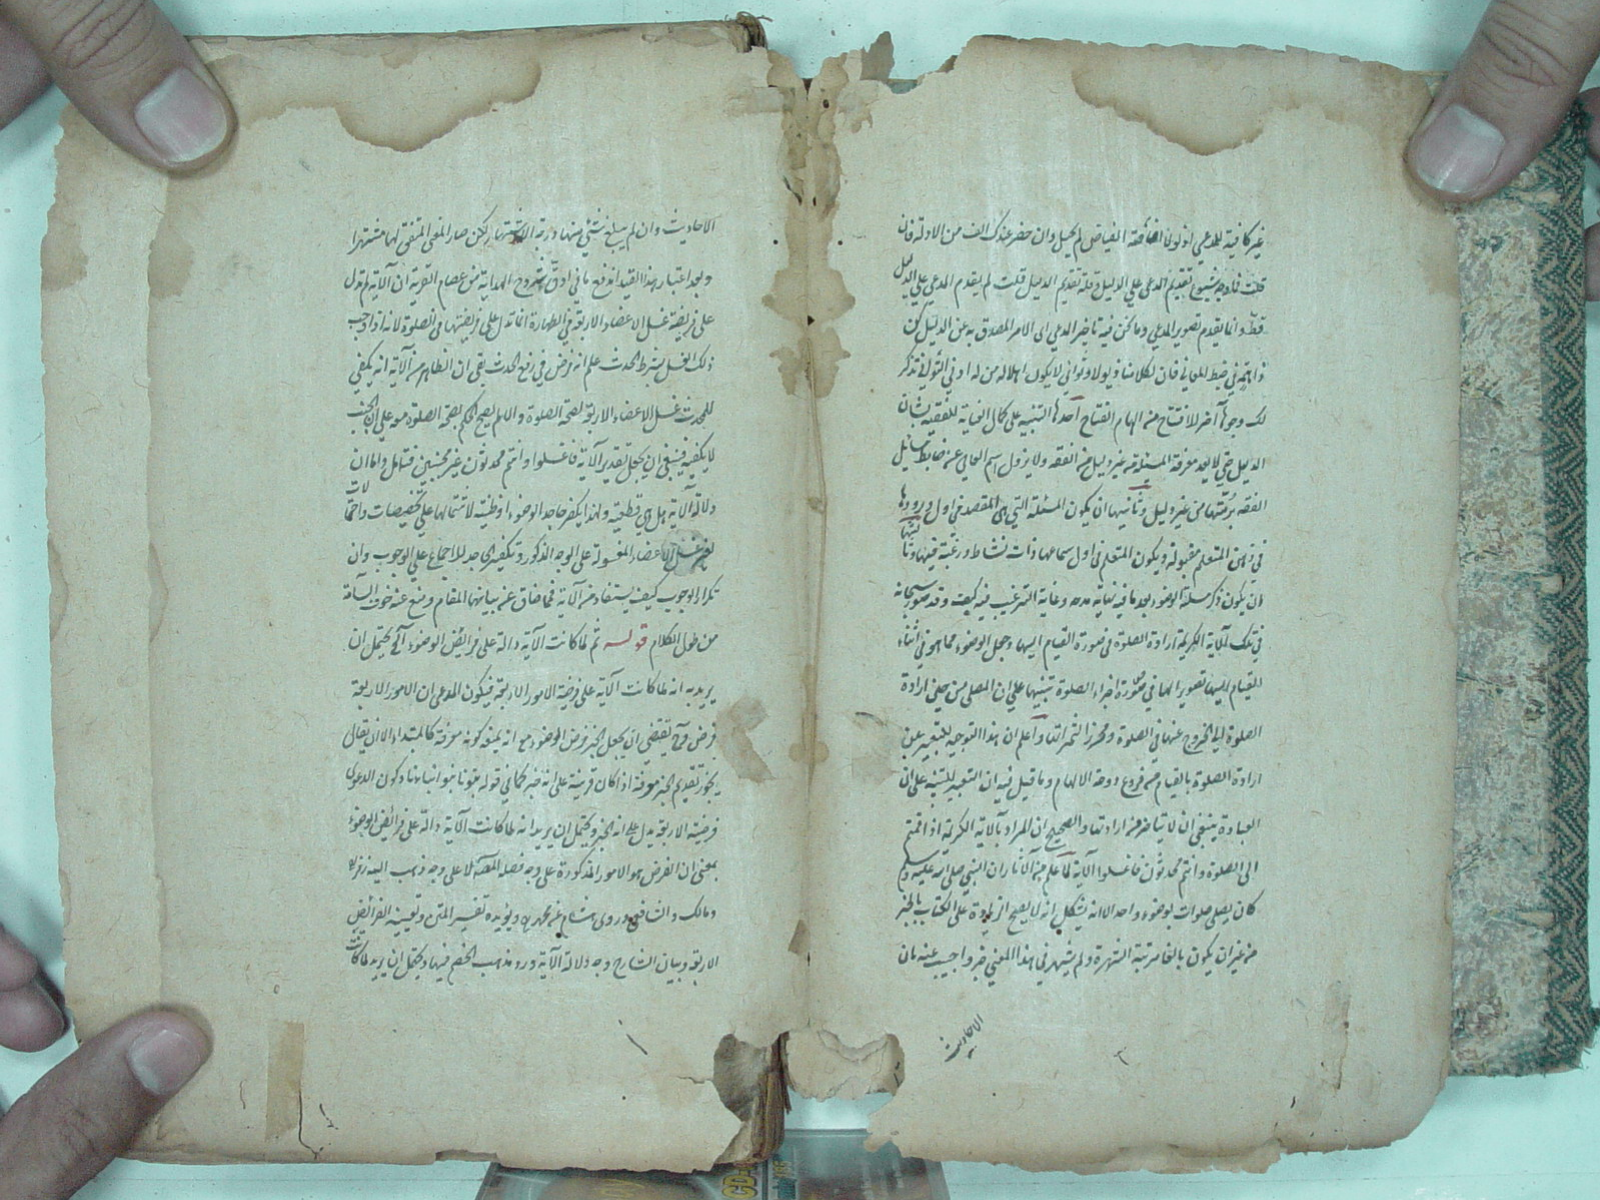 غير كافية للمدعي اذ لولا افاضة الفياض لم يحصل وان حضر عندك الف من الادلة فان
قلت فما وجه شيوع تقديم المدعى على الدليل وقلة تقديم الدليل قلت لم يقدم المدعى على الدليل
قط وانما يقدم تصوير المدعى وما كان فيه تاخير المدعى اى الامر المصدق به عن الدليل لكن
في ضبط المعاني فان لكلامنا ذيولا وثواني لا يكون اهلا له من له ادنى التواني تذكر
لك وجوها آخر للافتتاح من الهام الفتاح احدها التنبيه على كمال العناية للفقيه بشان
الدليل حتى لا يعد معرفة المسئلة من غير دليل من الفقه ولا يزول اسم العامي عن ضابط مسائل
الفقه برمتها من غير دليل وثانيها ان يكون المسئلة التي هي المقصد في اول ورودها
في ذهن المتعلم مقبولة ويكون المتعلم في اول سماعها ذات نشاط ورغبة فيها وثالثها
ان يكون ذكر مسئلة الوضوء بعد ما فيه نهاية مدحه وغاية الترغيب فيه كيف وقد صور سبحانه
في تلك الآية الكريمة ارادة الصلوة في صورة القيام اليها وجعل الوضوء مما هو في اثناء
القيام اليها تصويرا لها في صورة اجزاء الصلوة تنبيها على ان المصلى من حين ارادة
الصلوة الى الخروج عنها في الصلوة ومحرز الثمراتها واعلم ان هذا التوجيه للتعبير عن
ارادة الصلوة بالقيام من فروع دوحة الالهام وما قيل فيه ان التعبير للتنبيه على ان
العبادة ينبغي ان لا يتاخر عن ارادتها والصحيح ان المراد بالآية الكريمة اذا قمتم
الى الصلوة وانتم محدثون فاغسلوا الآية لما علم من الآثار ان النبي صلى الله عليه وسلم
كان يصلي صلوات بوضوء واحد الا انه يشكل انه لا يصح الزيادة على الكتاب بالخبر
من غير ان يكون بالغا مرتبة الشهرة ولم يشتهر في هذا المعنى خبر واجيب عنه بان
الاحاديث
الاحاديث وان لم يبلغ شئ منها درجة الاشتهار لكن صار المعنى المتفق لها مشتهرا
وبعد اعتبار هذا القيد اندفع ما في ادق شروح الهداية من عصام التوبة ان الآية لم تدل
على فريضة غسل الاعضاء الاربعة في الطهارة انما تدل على فرضيتها في الصلوة لانه اذا وجب
ذلك الغسل بشرط الحدث علم انه فرض في رفع الحدث بقى ان الظاهر من الآية انه يكفي
للمحدث غسل الاعضاء الاربعة لصحة الصلوة والا لم يصح الحكم بصحة الصلوة معه على ان الجنب
لا يكفيه فينبغي ان يجعل تقدير الآية فاغسلوا وانتم محدثون غير مجنبين فتامل واما ان
دلالة الآية هل هي قطعية ولهذا يكفر جاحد الوضوء او ظنية لاشتمالها على تخصيصات واحتمالات
لغير غسل الاعضاء المغسولة على الوجه المذكور وتكفير الجاحد للاجماع على الوجوب وان
تكرار الوجوب كيف يستفاد من الآية فما ضاق عن بيانها المقام ومنع عنه خوف السآمة
من طول الكلام قوله ثم لما كانت الآية دالة على فرائض الوضوء آلخ يحتمل ان
يريد به انه لما كانت الآية على فرضية الامور الاربعة فيكون المدعى ان الامور الاربعة
فرض وح يقتضي ان يجعل الخبر فرض الوضوء مع انه يمنعه كونه معرفة كالمبتداء الا ان يقال
يجوز تقديم الخبر معرفة اذا كان قرينة على انه خبر كما في قوله بنونا بنو ابنائنا وكون الدعوى
فرضية الاربعة يدل على انه الخبر ويحتمل ان يريد انه لما كانت الآية دالة على فرائض الوضوء
بمعنى ان الفرض هو الامور المذكورة على وجه فصله المصنف لا على وجه ذهب اليه زفر
ومالك والشافعي وروى هشام عن محمد رح ويؤيده تفسير المتن وتعيينه الفرائض
الاربعة وبيان الشارح وجه دلالة الآية ورد مذهب الخصم فيها ويحتمل ان يريد لما كانت